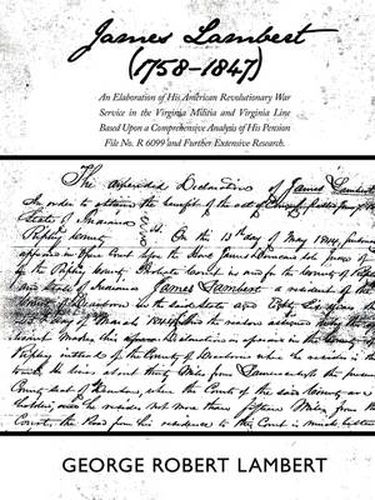 James Lambert
(1758-1847)
An Elaboration of His American Revolutionary War
Service in the Virginia Militia and Virginia Line
Based Upon a Comprehensive Analysis of His Pension
File No. R 6099 and Further Extensive Research.
The Declaration of James Lambert
In order to obtain the benefit of the act of
State of Indiana
Ripley County
SS
St. On this 13th day of May 1844, personally
appeared in open Court before the Hon James
of the Ripley County Probate Court in and for the County of Ripley
and State of Indiana James Lambert a resident of the
County of Dearborn in the said State aged Eighty Six years the
day of March 1844, and the reason why the
Declaration in
Ripley instead of the County of Dearborn where he resides is the
He lives about thirty Miles from Lawrenceburgh the present
County seat of Dearborn, where the Courts of the said County are
holden, and he resides not more than fifteen Miles from the
Court, the Road from his residence to this Court is much better
GEORGE ROBERT LAMBERT